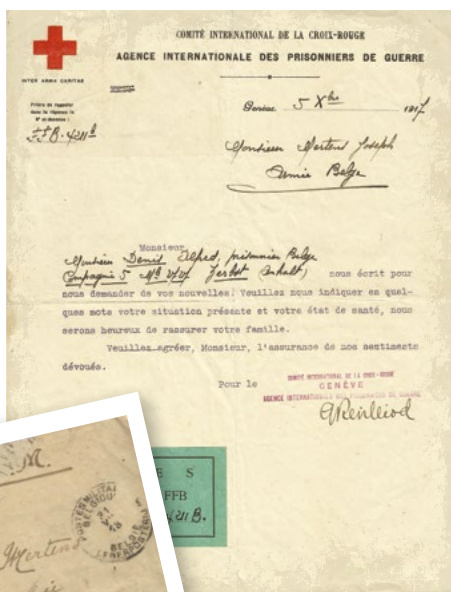 COMITÉ INTERNATIONAL DE LA CROIX-ROUGE
AGENCE INTERNATIONALE DES PRISONNIERS DE GUERRE
INTER ARMA CARITAS
Prière de rappeler
dans la réponse le
Genève 5 Xbre 1917
Monsieur Mertens Joseph
Armée Belge
Monsieur,
Monsieur Denis Alfred, prisonnier Belge
Compagnie 5 Zerbst Anhalt, nous écrit pour
nous demander de vos nouvelles. Veuillez nous indiquer en quel-
ques mots votre situation présente et votre état de santé, nous
serons heureux de rassurer votre famille.
Veuillez agréer, Monsieur, l'assurance de nos sentiments
dévoués.
Pour le
COMITÉ INTERNATIONAL DE LA CROIX-ROUGE
GENÈVE
AGENCE INTERNATIONALE DES PRISONNIERS DE GUERRE
E S
FFB
4211 B.
M.
BELGIQUE
BELGIE
Mertens